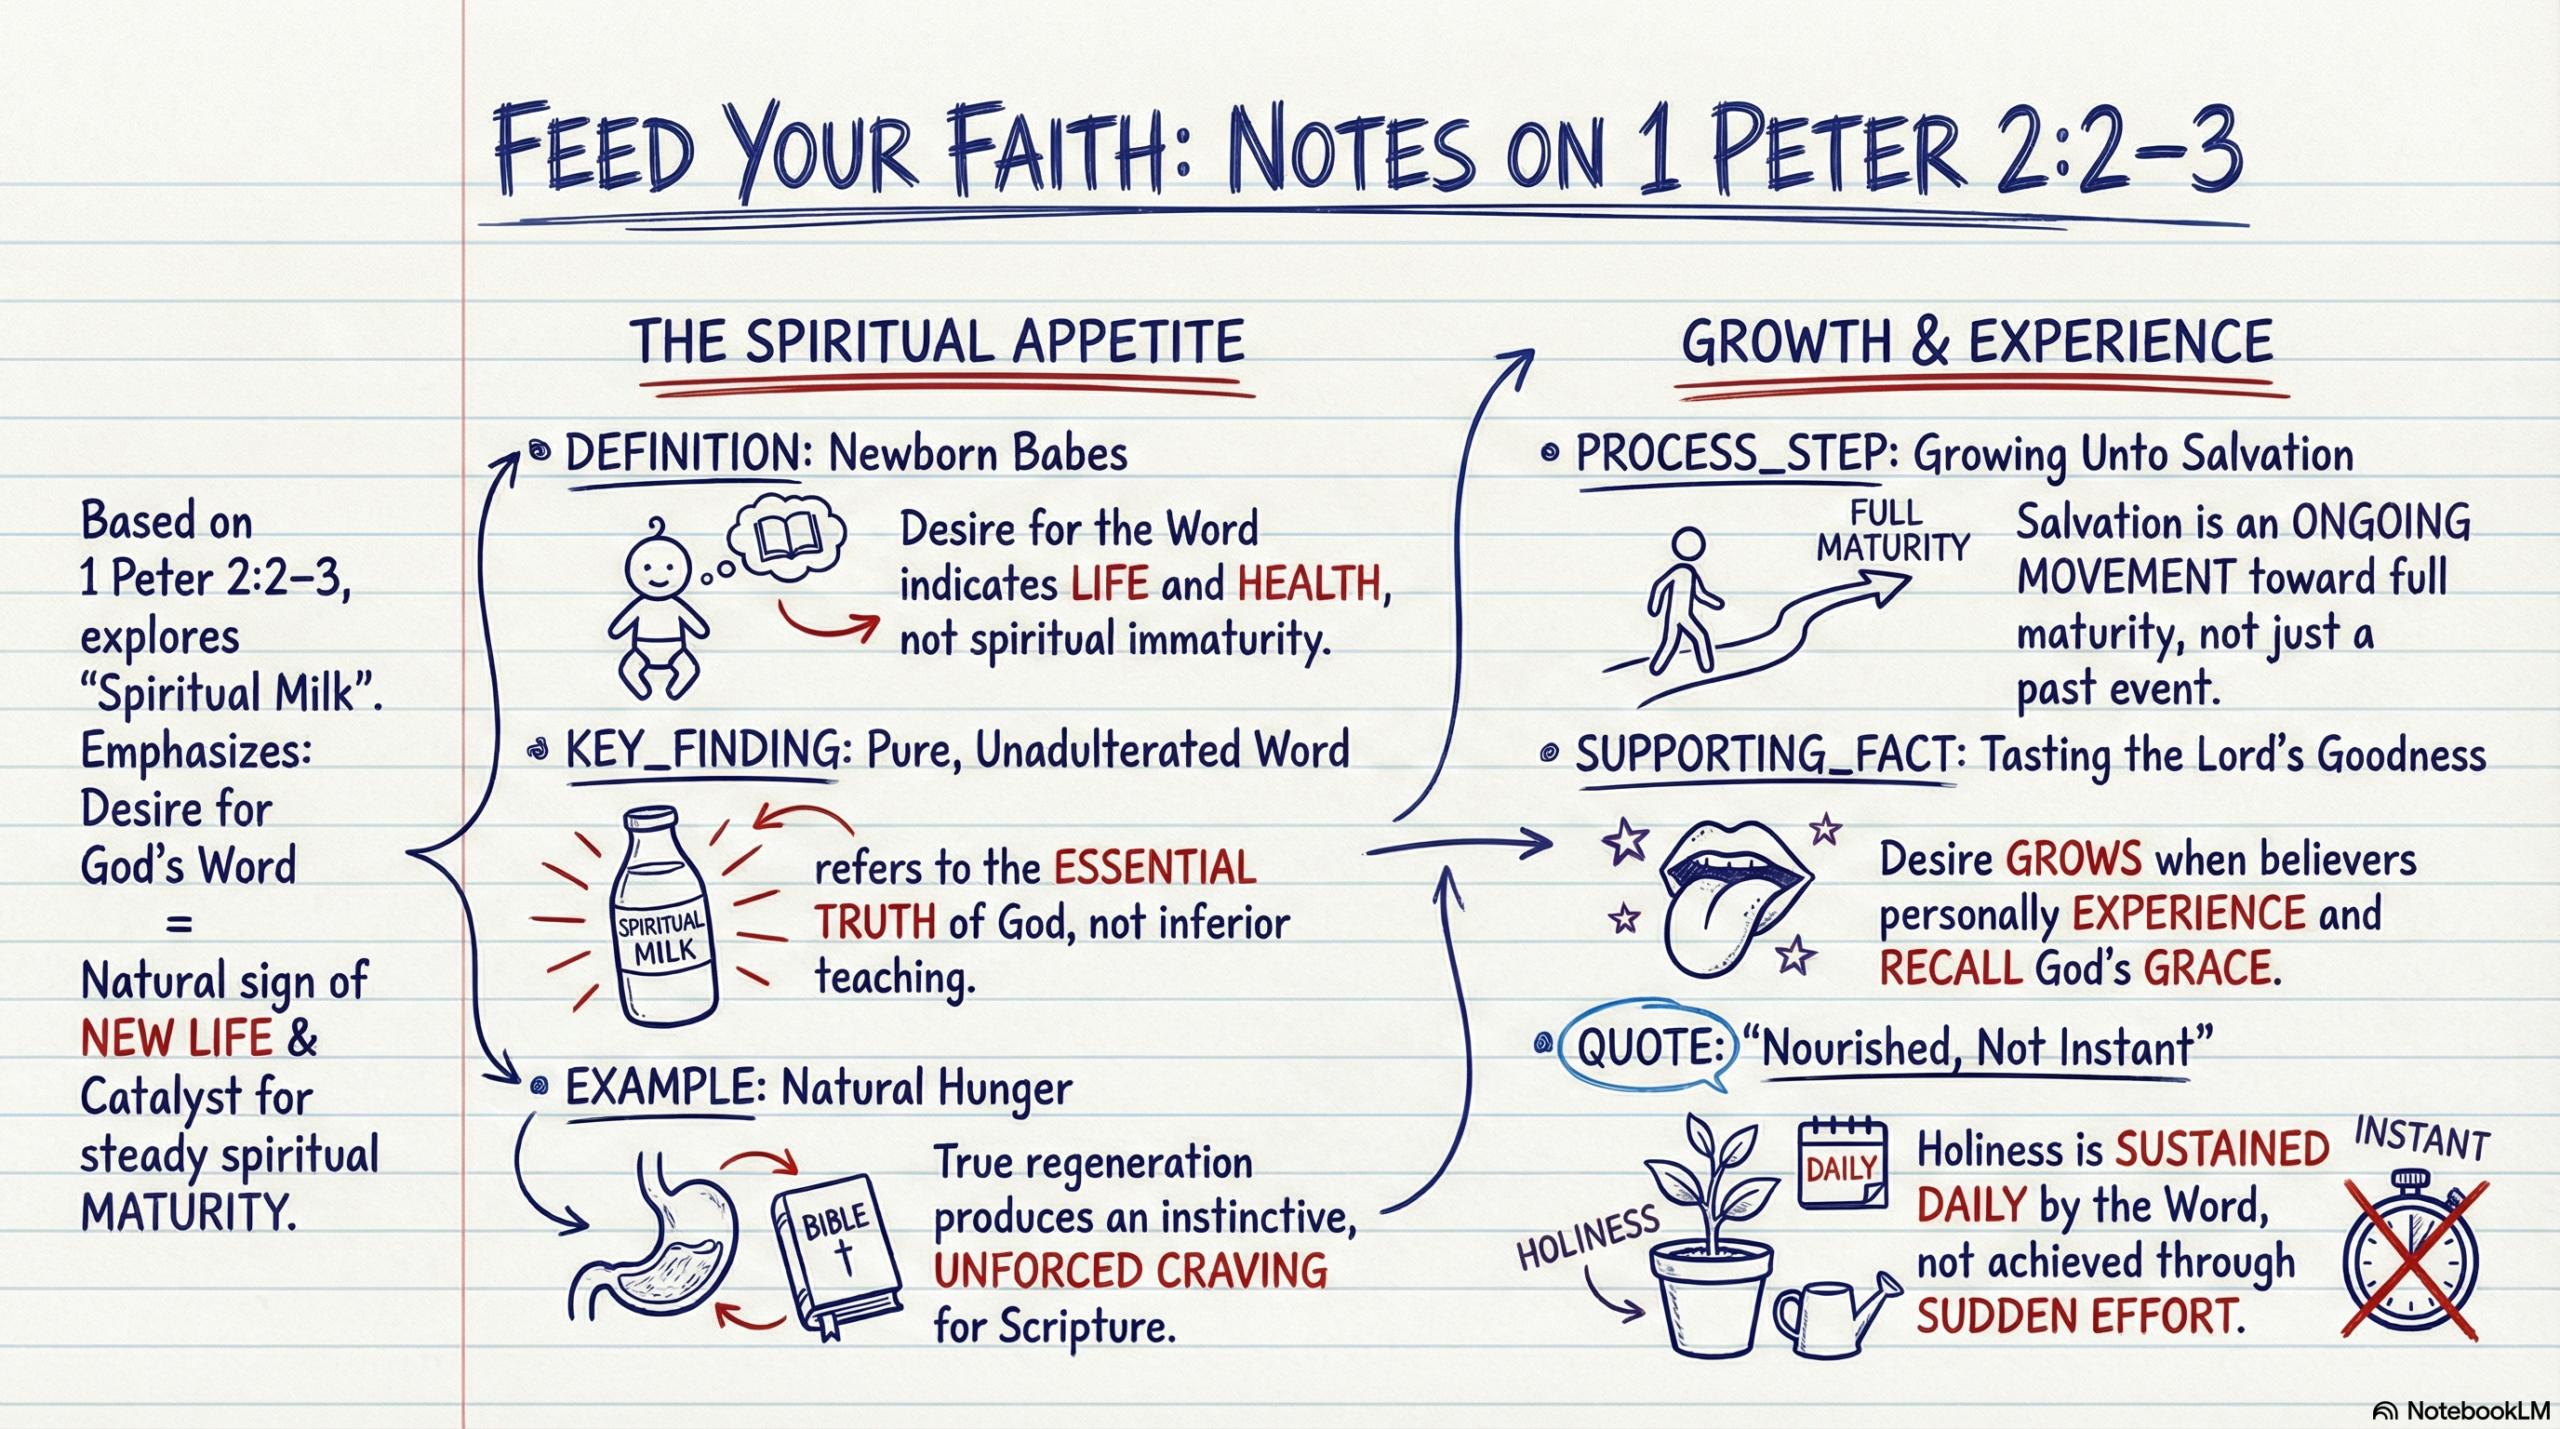 FEED YOUR FAITH: NOTES ON 1 PETER 2:2–3
Based on
1 Peter 2:2–3,
explores
“Spiritual Milk”.
Emphasizes:
Desire for
God’s Word
=
Natural sign of
NEW LIFE &
Catalyst for
steady spiritual
MATURITY.
THE SPIRITUAL APPETITE
DEFINITION: Newborn Babes
Desire for the Word
indicates LIFE and HEALTH,
not spiritual immaturity.
KEY_FINDING: Pure, Unadulterated Word
SPIRITUAL
MILK
refers to the ESSENTIAL
TRUTH of God, not inferior
teaching.
EXAMPLE: Natural Hunger
BIBLE
True regeneration
produces an instinctive,
UNFORCED CRAVING
for Scripture.
GROWTH & EXPERIENCE
PROCESS_STEP: Growing Unto Salvation
FULL
MATURITY
Salvation is an ONGOING
MOVEMENT toward full
maturity, not just a
past event.
SUPPORTING_FACT: Tasting the Lord’s Goodness
Desire GROWS when believers
personally EXPERIENCE and
RECALL God’s GRACE.
QUOTE: “Nourished, Not Instant”
HOLINESS
DAILY
Holiness is SUSTAINED
DAILY by the Word,
not achieved through
SUDDEN EFFORT.
INSTANT
NotebookLM